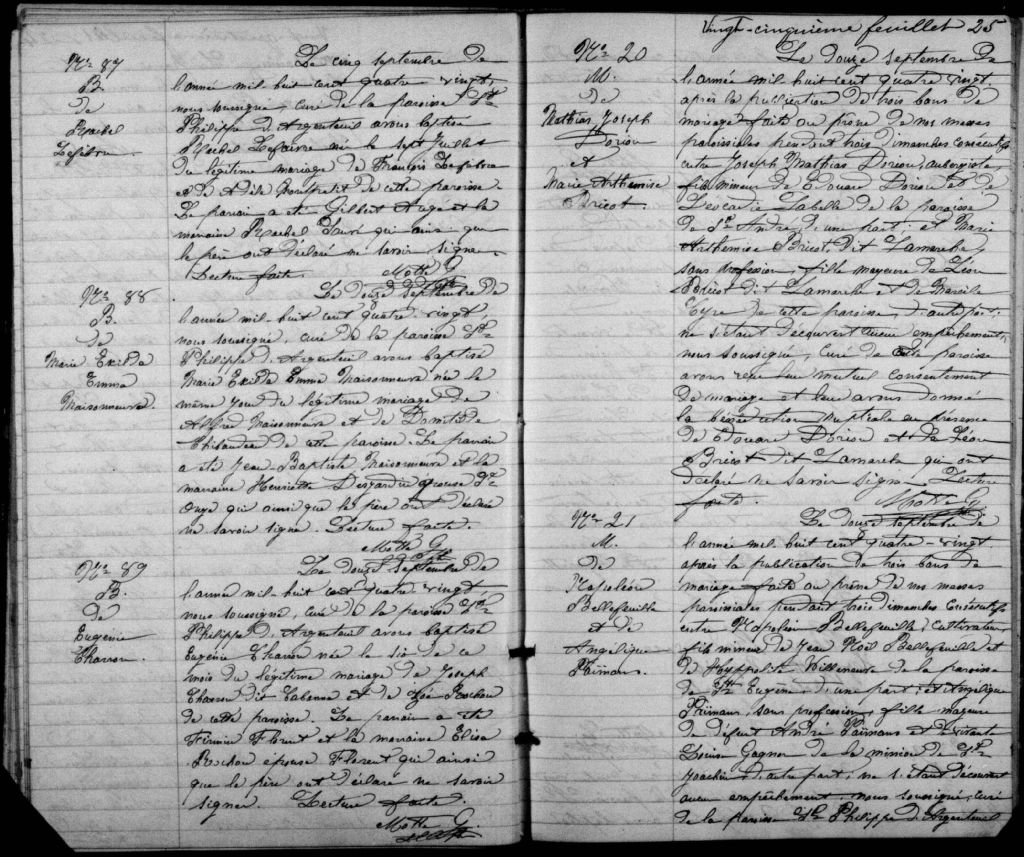 No 87
B.
de
Rachel
Lefebvre.
Le cinq septembre de
l'année mil huit cent quatre vingt,
nous soussigné, curé de la paroisse St
Philippe d'Argenteuil avons baptisé
Rachel Lefebvre née le sept Juillet
du légitime mariage de François Lefebvre
et de Adèle de cette paroisse.
Le parrain a été Gilbert et la
marraine Rachel Sauvé qui ainsi que
le père ont déclaré ne savoir signer.
Lecture faite. Motte
No 88
B.
de
Marie Exilda
Emma
Maisonneuve.
Le douze septembre de
l'année mil-huit cent quatre-vingt,
nous soussigné, curé de la paroisse St
Philippe d'Argenteuil avons baptisé
Marie Exilda Emma Maisonneuve née le
même jour du légitime mariage de
Alfred Maisonneuve et de
Thibaudeau de cette paroisse. Le parrain
a été Jean-Baptiste Maisonneuve et la
marraine Henriette Desjardins épouse
qui ainsi que le père ont déclaré
ne savoir signer. Lecture faite.
Motte
No 89
B.
de
Eugénie
Charron.
Le douze septembre de
l'année mil huit cent quatre vingt,
nous soussigné, curé de la paroisse St
Philippe d'Argenteuil avons baptisé
Eugénie Charron née le six de ce
mois du légitime mariage de Joseph
Charron dit Cabanna et de Zoé Rochon
de cette paroisse. Le parrain a été
Firmin Florent et la marraine Elisa
Rochon épouse Florent qui ainsi
que le père ont déclaré ne savoir
signer. Lecture faite.
Motte
Vingt-cinquième feuillet 25
No 20
M.
de
Mathias Joseph
Dorion
et
Marie Arthemise
Bricot.
Le douze septembre de
l'année mil huit cent quatre vingt
après la publication de trois bans de
mariage faite au prône de nos messes
paroissiales pendant trois dimanches consécutifs
entre Joseph Mathias Dorion, aubergiste,
fils mineur de Edouard Dorion et de
Leocadie Labelle de la paroisse
de St André, d'une part; et Marie
Arthemise Bricot dit Lamarche,
sans profession, fille majeure de Léon
Bricot dit Lamarche et de
de cette paroisse, d'autre part;
ne s'étant découvert aucun empêchement,
nous soussigné, curé de cette paroisse
avons reçu leur mutuel consentement
de mariage et leur avons donné
la bénédiction nuptiale en présence
de Edouard Dorion et de Léon
Bricot dit Lamarche qui ont
déclaré ne savoir signer. Lecture
faite. Motte
No 21
M.
de
Napoléon
Bellefeuille
et de
Angelique
Päimans.
Le douze septembre de
l'année mil huit cent quatre-vingt
après la publication de trois bans de
mariage faite au prône de nos messes
paroissiales pendant trois dimanches consécutifs
entre Napoléon Bellefeuille, cultivateur,
fils mineur de Jean Noël Bellefeuille et
de Hyppolite Villeneuve de la paroisse
de Ste Eugène, d'une part; et Angelique
Päimans, sans profession, fille majeure
de défunt André Päimans et
Louise Gagnon de la mission de St
Joachin d'autre part; ne s'étant découvert
aucun empêchement, nous soussigné, curé
de la paroisse St Philippe d'Argenteuil